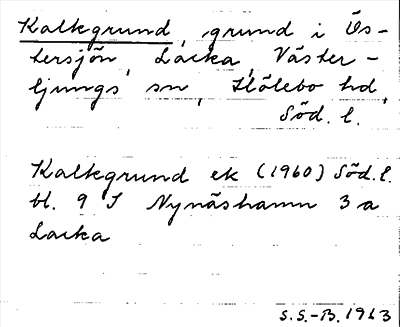 Kalkgrund, grund i Ös-
tersjön, Lacka, Väster-
ljungs sn, Hölebo hd,
Söd. l.
Kalkgrund ek (1960) Söd. l.
bl. 9 I Nynäshamn 3 a
Lacka
S.S.-B. 1963